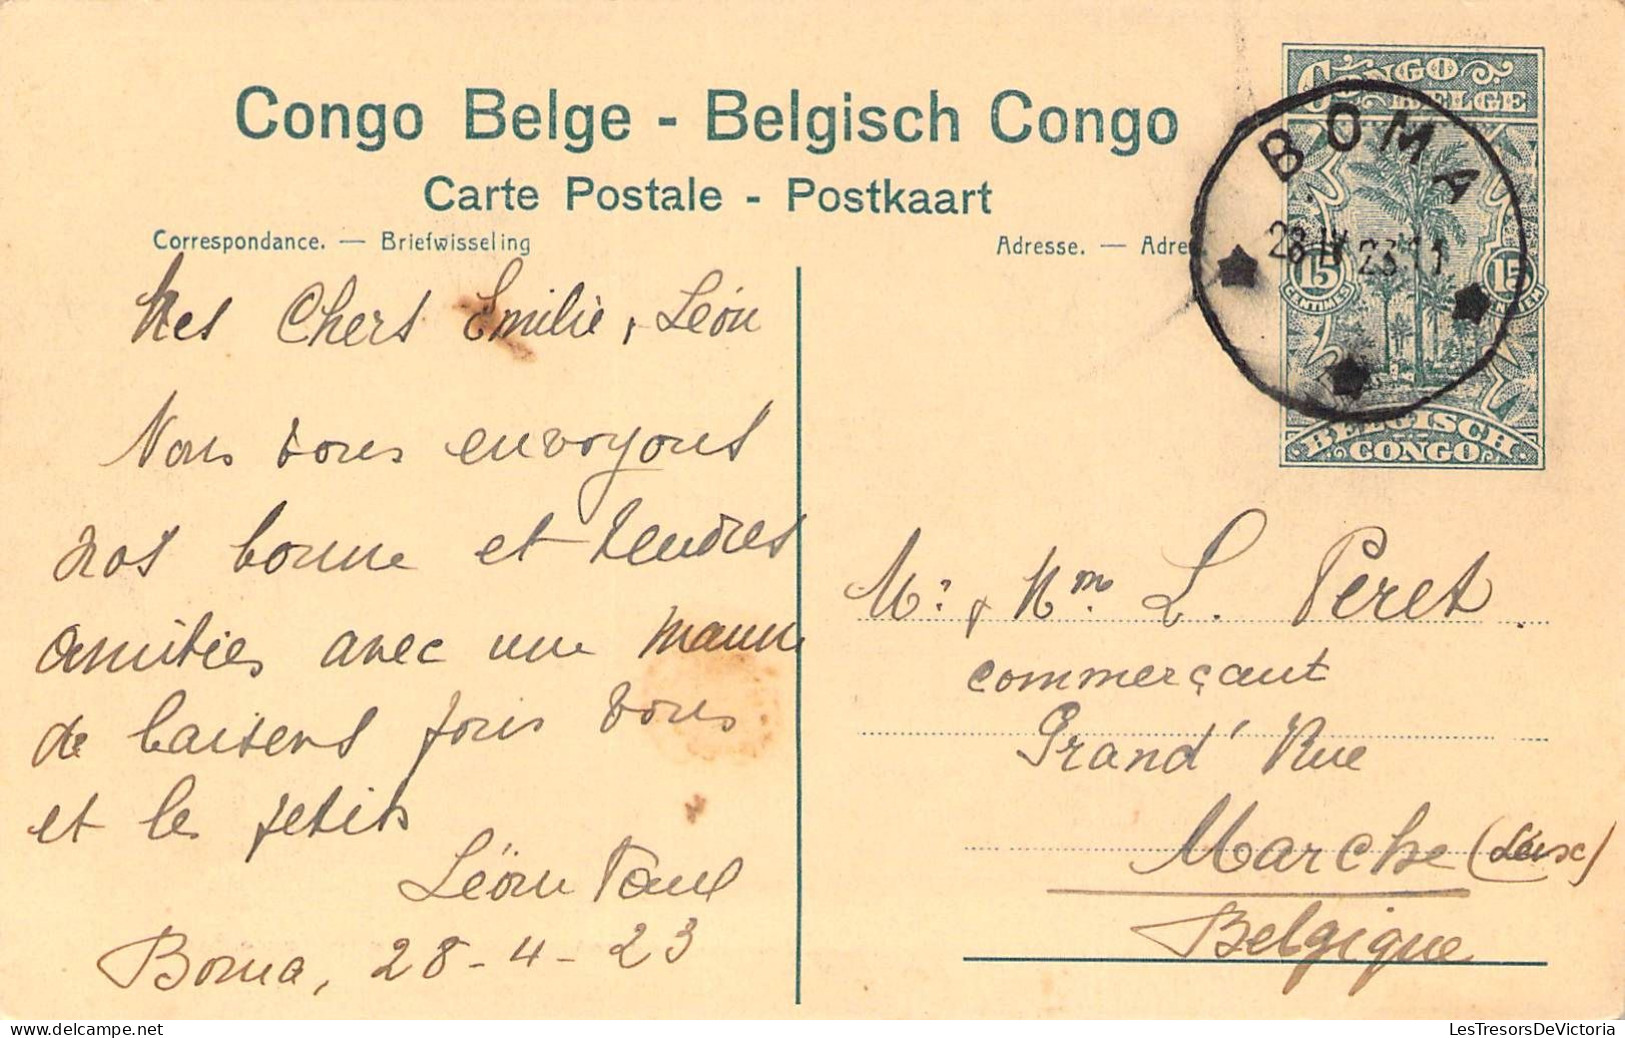 Congo Belge - Belgisch Congo
Carte Postale - Postkaart
Correspondance. — Briefwisseling
Adresse. — Adre
CONGO
BELGE
15
CENTIMES
15
BELGISCH
CONGO
BOMA
28 IV 23
Mes Chers Emilie, Léon
Nous vous envoyons
nos bonne et tendres
amitiés avec une manne
de baisers pour vous
et le petits
Léon Paul
Boma, 28-4-23
Mr. & Mme. L. Peret
commerçant
Grand' Rue
Marche (Lux)
Belgique
LesTresorsDeVictoria
delcampe.net